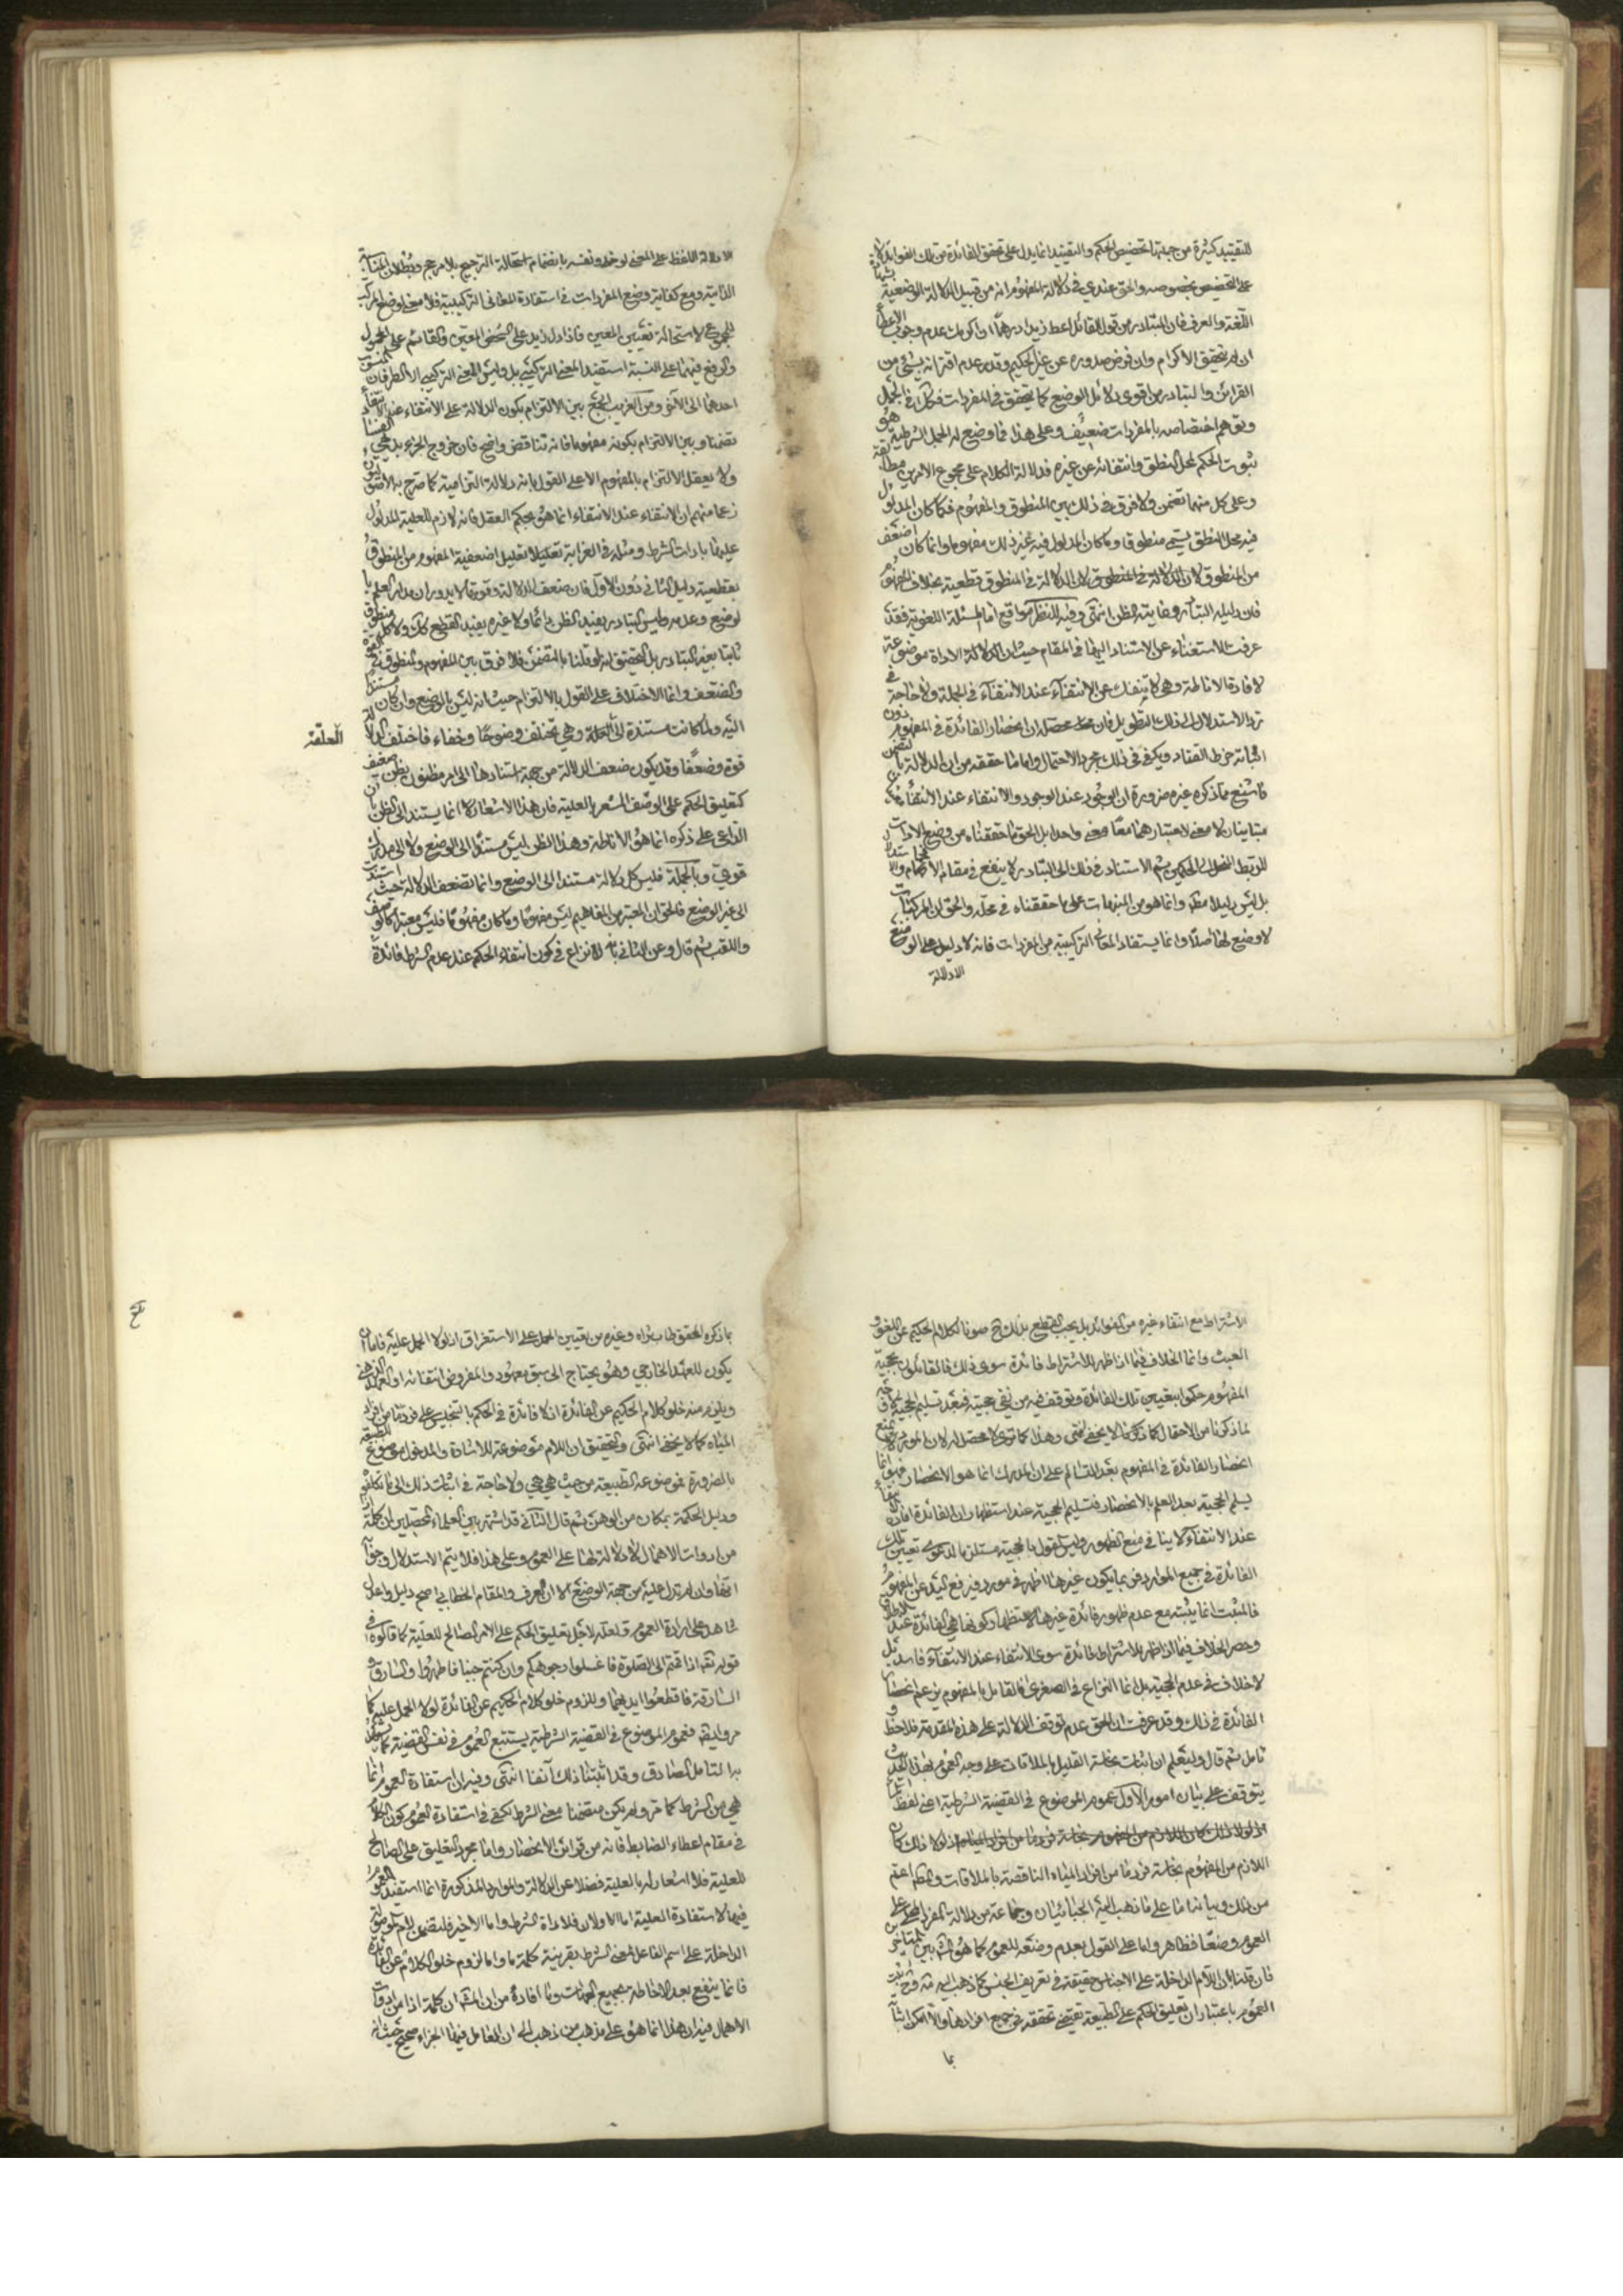 للتقييد كثيرة من جملتها تخصيص الحكم والتقييد انما يدل على تحقق الفائدة من تلك الفوائد لا
على التخصيص بخصوصه والحق عندي في دلالة المفهوم انه من قبيل الدلالة الوضعية
اللغة والعرف فان المتبادر من قول القائل اعط زيدا درهما ان اكرمك عدم وجوب الاعطاء
ان لم يتحقق الاكرام وان فرض صدوره عن غير الحكيم وقدر عدم اقترانه بشيء من
القرائن والتبادر من اقوى دلائل الوضع كما يتحقق في المفردات فكذا في الجمل
وتوهم اختصاصه بالمفردات ضعيف وعلى هذا فما وضع له الجمل الشرطية هو
ثبوت الحكم لمحل النطق وانتفائه عن غيره فدلالة الكلام على مجموع الامرين مطابقة
وعلى كل منهما تضمن ولا فرق في ذلك بين المنطوق والمفهوم فكما كان المدلول
فيه محل النطق يسمى منطوقا وما كان المدلول فيه غير ذلك مفهوما وانما كان اضعف
من المنطوق لان الدلالة في المنطوق قطعية بخلاف المفهوم
فان دليله التبادر وغايته الظن انتهى وفيه للنظر مواقع اما المسئلة اللغوية فقد
عرفت الاستغناء عن الاستناد اليها في المقام حيث ان الاداة موضوعة
لافادة الاناطة وهي لا ينفك عن الانتفاء عند الانتفاء في الجملة ولا حاجة في
الاستدلال الى ذلك التطويل فان محصله ان انحصار الفائدة في المفهوم دون
اثباته خرط القتاد ويكفي في ذلك مجرد الاحتمال واما ما حققه من ان الدلالة بالتضمن
فاشنع مما ذكره غيره ضرورة ان الوجود عند الوجود والانتفاء عند الانتفاء
متباينان لا معنى لاعتبارهما معا معنى واحدا بل الحق ما حققناه من وضع الادات
للربط الخاص بالحكمين ثم الاستناد في ذلك الى التبادر لا ينفع في مقام
بل ليس دليلا مطلقا وانما هو من المنبهات على ما حققناه في محله والحق ان المركبات
لا وضع لها اصلا وانما يستفاد المعاني التركيبية من المفردات فانه لا دليل على الوضع
الا دلالة
الا دلالة اللفظ على المعنى لوحده ونفسه بانضمام استحالة الترجيح بلا مرجح وبطلان المناسبة
الذاتية ومع كفاية وضع المفردات في استفادة المعاني التركيبية فلا معنى لوضع المركب
للمجموع لاستحالة تعيين المعين فاذا دل زيد على الشخص المعين والقائم على المحمول
والرفع فيهما على النسبة استفيد المعنى التركيبي بل وليس المعنى التركيبي الا الطرفان المنسوب
احدهما الى الآخر ومن الغريب الجمع بين الالتزام بكون الدلالة على الانتفاء عند الانتفاء
تضمنا وبين الالتزام بكونه مفهوما فانه تناقض واضح فان خروج الجزء بديهي
ولا يعقل الالتزام بالمفهوم الا على القول بانه دلالة التزامية كما صرح به الاصوليون
زعما منهم ان الانتفاء عند الانتفاء انما هو بحكم العقل فانه لازم للعلية المدلول
عليها بادات الشرط ومثله في الغرابة تعليل اضعفية المفهوم من المنطوق
بقطعية دليل الثاني دون الاول فان ضعف الدلالة وقوتها لا يدوران مدار العلم با
لوضع وعدمه وليس التبادر يفيد الظن دائما ولا غيره يفيد القطع كذلك ولا كل منطوق
ثابتا بغير التبادر بل التحقيق انه لو قلنا بالتضمن فلا فرق بين المفهوم والمنطوق في القوة
والضعف وانما الاختلاف على القول بالالتزام حيث انه ليس بالوضع وان كان مستندا
اليه ولما كانت مستندة الى العلة وهي تختلف وضوحا وخفاء فاختلف الدلالة
العلقة
قوة وضعفا وقد يكون ضعف الدلالة من جهة استنادها الى امر مظنون بظن ضعيف
كتعليق الحكم على الوصف المشعر بالعلية فان هذا الاشعار انما يستند الى الظن بان
الداعي على ذكره انما هو الاناطة وهذا الظن ليس مستندا الى الوضع ولا الى مدرك
قوي وبالجملة فليس كل دلالة مستندا الى الوضع وانما تضعف الدلالة حيث استندت
الى غير الوضع فالحق ان المعتبر من المفاهيم ليس مفهوما وما كان مفهوما فليس معتبرا كالوصف
واللقب ثم قال وعن الثاني بانه لا نزاع في كون انتفاء الحكم عند عدم الشرط فائدة
الاشتراط مع انتفاء غيره من الفوائد بل يجب القطع بذلك ح صونا لكلام الحكيم عن اللغو و
العبث وانما الخلاف فيما اذا ظهر للاشتراط فائدة سوى ذلك فالقائلون بحجية
المفهوم حكموا بتعيين تلك الفائدة وتوقف فيه من نفى حجيته فبعد تسليم الحجية
لما ذكرنا من الاحتمال كما ذكر لا يخفى انتهى وهذا كما ترى لا محصل له لان المورد يمنع
انحصار الفائدة في المفهوم بعد التسالم على ان المدرك انما هو الانحصار فهو انما
يسلم الحجية بعد العلم بالانحصار فتسليم الحجية عند استظهار ان الفائدة افادة الانتفاء
عند الانتفاء لا ينافي منع الظهور وليس القول بالحجية مستلزما لدعوى تعيين تلك
الفائدة في جميع الموارد فربما يكون غيرها اظهر في مورد فيرفع اليد عن المفهوم
فالمثبت انما يثبته مع عدم ظهور فائدة غيرها لاستظهار كونها هي الفائدة عند الاطلاق
وحصر الخلاف فيما اذا ظهر للاشتراط فائدة سوى الانتفاء عند الانتفاء فاسد بل
لا خلاف في عدم الحجية بل انما النزاع في الصغرى فالقائل بالمفهوم يزعم انحصار
الفائدة في ذلك وقد عرفت ان الحق عدم توقف الدلالة على هذه المقدمة فلاحظ و
تأمل ثم قال وليعلم ان اثبات نجاسة القليل بالملاقات على وجه العموم بهذا الحديث
يتوقف على بيان امور الاول عموم الموضوع في القضية الشرطية اعني لفظ الماء
اذ لولا ذلك كان
اللازم من المفهوم نجاسة فرد ما من افراد المياه الناقصة بالملاقات والحكم اعم
من ذلك وبيانه اما على ما ذهب اليه الجبائيان وجماعة من دلالة المفرد المحلى على
العموم وضعا فظاهر واما على القول بعدم وضعه للعموم كما هو المش بين المتاخرين
فان قلنا بان اللام الداخلة على الاجناس حقيقة في تعريف الجنس كما ذهب اليه فيثبت
العموم باعتبار ان تعليق الحكم على الطبيعة يقتضي تحققه في جميع افرادها والا امكن اثباته
بما
بما ذكره المحقق طاب ثراه وغيره من تعيين الحمل على الاستغراق اذ لولا الحمل عليه فاما ان
يكون للعهد الخارجي وهو يحتاج الى سبق معهود والمفروض انتفائه او للعهد الذهني
ويلزم منه خلو كلام الحكيم عن الفائدة اذ لا فائدة في الحكم بالتنجيس على فرد ما من افراد
المياه كما لا يخفى انتهى والتحقيق ان اللام موضوعة للاشارة والمدخول موضوع للطبيعة
بالضرورة فموضوعه الطبيعة من حيث هي هي ولا حاجة في اثبات ذلك الى ما تكلفوه
ودليل الحكمة بمكان من الوهن ثم قال الثاني قد اشتهر بين العلماء المحصلين ان كلمة اذا
من ادوات الاهمال لا دلالة لها على العموم وعلى هذا فلا يتم الاستدلال وجوابه
انها وان لم تدل عليه من جهة الوضع الا ان العرف والمقام الخطابي اصح دليل واعدل
شاهد على ارادة العموم ولعله لاجل تعليق الحكم على الامر الصالح للعلية كما قالوه في
قوله تعالى اذا قمتم الى الصلوة فاغسلوا وجوهكم وان كنتم جنبا فاطهروا والسارق و
السارقة فاقطعوا ايديهما وللزوم خلو كلام الحكيم عن الفائدة لولا الحمل عليه كما
مر وايضا فعموم الموضوع في القضية الشرطية يستتبع العموم في نفس القضية كما يشهد
به التامل الصادق وقد اثبتنا ذلك آنفا انتهى وفيه ان استفادة العموم انما
هي من الشرط كما مر ولو لم يكن متضمنا معنى الشرط لكفى في استفادة العموم كون الكلام
في مقام اعطاء الضابط فانه من قرائن الانحصار واما مجرد التعليق على الصالح
للعلية فلا اشعار له بالعلية فضلا عن الدلالة والموارد المذكورة انما استفيد العموم
فيها لاستفادة العلية اما الاولان فلاداة الشرط واما الاخير فلتضمن اللام الموصولة
الداخلة على اسم الفاعل لمعنى الشرط بقرينة كلمة ما واما لزوم خلو الكلام عن الفائدة
فانما ينفع بعد الاحاطة بجميع الجهات وما افاده من ان المشهور ان كلمة اذا من ادوات
الاهمال فيه ان هذا انما هو على مذهب من ذهب الى ان العامل فيها الجزاء صحيح حيث انه